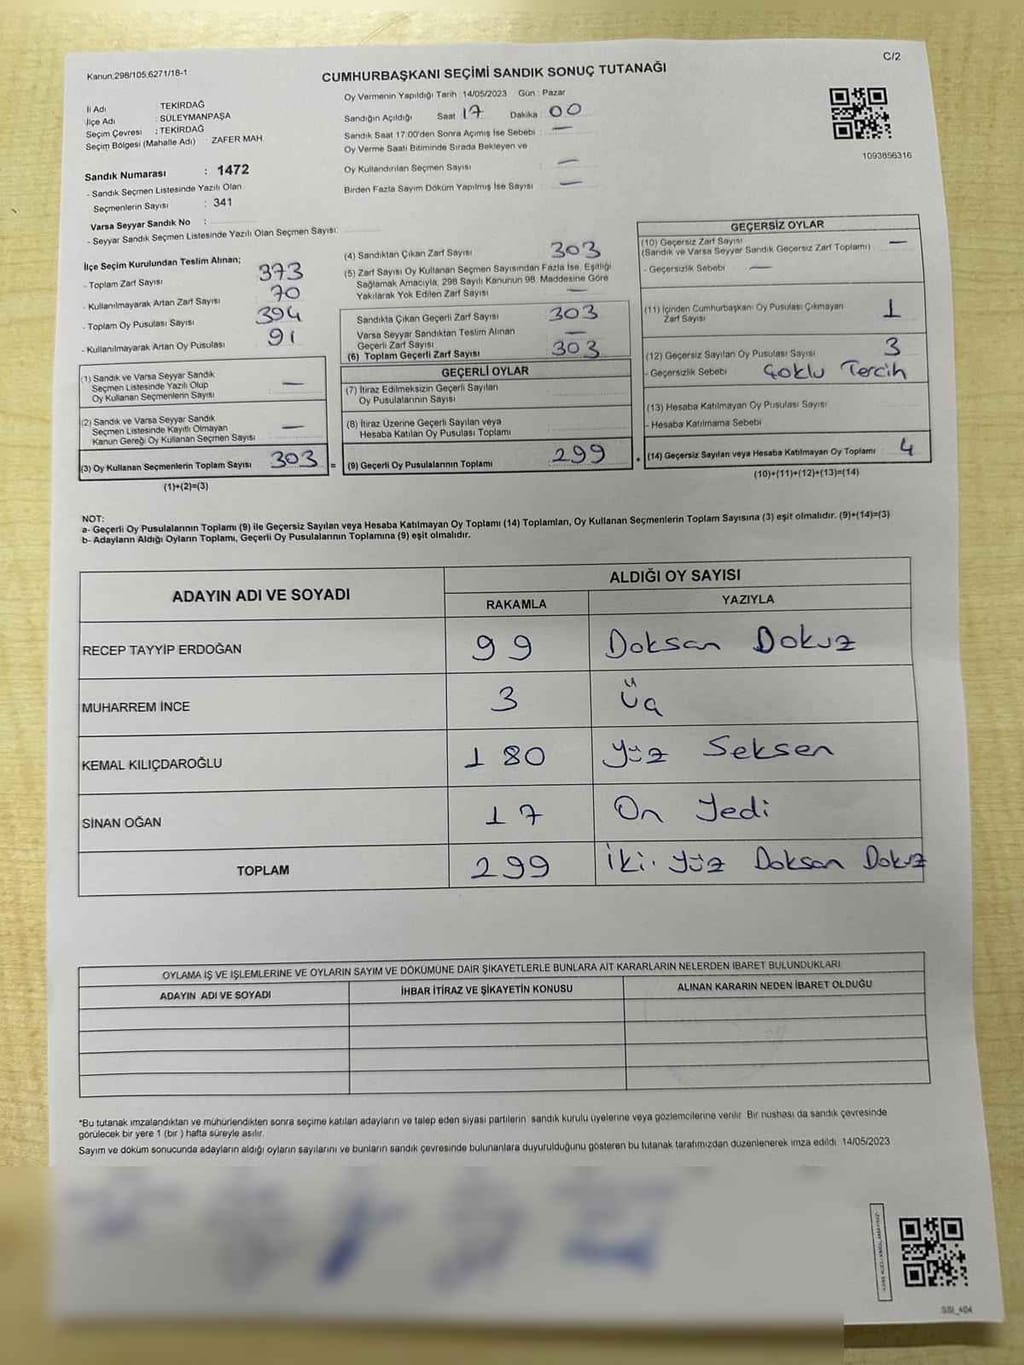 Kanun 298/105.6271/18-1
C/2
CUMHURBAŞKANI SEÇİMİ SANDIK SONUÇ TUTANAĞI
İl Adı : TEKİRDAĞ
İlçe Adı : SÜLEYMANPAŞA
Seçim Çevresi : TEKİRDAĞ
Seçim Bölgesi (Mahalle Adı) : ZAFER MAH.
Sandık Numarası : 1472
- Sandık Seçmen Listesinde Yazılı Olan
Seçmenlerin Sayısı : 341
Varsa Seyyar Sandık No :
- Seyyar Sandık Seçmen Listesinde Yazılı Olan Seçmen Sayısı:
Oy Vermenin Yapıldığı Tarih : 14/05/2023 Gün : Pazar
Sandığın Açıldığı Saat 17 Dakika 00
Sandık Saat 17:00'den Sonra Açımış İse Sebebi : —
Oy Verme Saati Bitiminde Sırada Bekleyen ve
Oy Kullandırılan Seçmen Sayısı —
Birden Fazla Sayım Döküm Yapılmış İse Sayısı —
1093856316
İlçe Seçim Kurulundan Teslim Alınan;
- Toplam Zarf Sayısı 373
- Kullanılmayarak Artan Zarf Sayısı 70
- Toplam Oy Pusulası Sayısı 394
- Kullanılmayarak Artan Oy Pusulası 91
(1) Sandık ve Varsa Seyyar Sandık
Seçmen Listesinde Yazılı Olup
Oy Kullanan Seçmenlerin Sayısı —
(2) Sandık ve Varsa Seyyar Sandık
Seçmen Listesinde Kayıtlı Olmayan
Kanun Gereği Oy Kullanan Seçmen Sayısı —
(3) Oy Kullanan Seçmenlerin Toplam Sayısı 303 =
(1)+(2)=(3)
(4) Sandıktan Çıkan Zarf Sayısı 303
(5) Zarf Sayısı Oy Kullanan Seçmen Sayısından Fazla İse, Eşitliği
Sağlamak Amacıyla, 298 Sayılı Kanunun 98. Maddesine Göre
Yakılarak Yok Edilen Zarf Sayısı —
Sandıkta Çıkan Geçerli Zarf Sayısı 303
Varsa Seyyar Sandıktan Teslim Alınan
Geçerli Zarf Sayısı —
(6) Toplam Geçerli Zarf Sayısı 303
GEÇERLİ OYLAR
(7) İtiraz Edilmeksizin Geçerli Sayılan
Oy Pusulalarının Sayısı
(8) İtiraz Üzerine Geçerli Sayılan veya
Hesaba Katılan Oy Pusulası Toplamı
(9) Geçerli Oy Pusulalarının Toplamı 299 +
GEÇERSİZ OYLAR
(10) Geçersiz Zarf Sayısı
(Sandık ve Varsa Seyyar Sandık Geçersiz Zarf Toplamı) —
- Geçersizlik Sebebi —
(11) İçinden Cumhurbaşkanı Oy Pusulası Çıkmayan
Zarf Sayısı 1
(12) Geçersiz Sayılan Oy Pusulası Sayısı 3
- Geçersizlik Sebebi Çoklu Tercih
(13) Hesaba Katılmayan Oy Pusulası Sayısı
- Hesaba Katılmama Sebebi
(14) Geçersiz Sayılan veya Hesaba Katılmayan Oy Toplamı 4
(10)+(11)+(12)+(13)=(14)
NOT:
a- Geçerli Oy Pusulalarının Toplamı (9) ile Geçersiz Sayılan veya Hesaba Katılmayan Oy Toplamı (14) Toplamları, Oy Kullanan Seçmenlerin Toplam Sayısına (3) eşit olmalıdır. (9)+(14)=(3)
b- Adayların Aldığı Oyların Toplamı, Geçerli Oy Pusulalarının Toplamına (9) eşit olmalıdır.
ADAYIN ADI VE SOYADI
ALDIĞI OY SAYISI
RAKAMLA YAZIYLA
RECEP TAYYİP ERDOĞAN 99 Doksan Dokuz
MUHARREM İNCE 3 Üç
KEMAL KILIÇDAROĞLU 180 Yüz Seksen
SİNAN OĞAN 17 On Yedi
TOPLAM 299 İki Yüz Doksan Dokuz
OYLAMA İŞ VE İŞLEMLERİNE VE OYLARIN SAYIM VE DÖKÜMÜNE DAİR ŞİKAYETLERLE BUNLARA AİT KARARLARIN NELERDEN İBARET BULUNDUKLARI
ADAYIN ADI VE SOYADI İHBAR İTİRAZ VE ŞİKAYETİN KONUSU ALINAN KARARIN NEDEN İBARET OLDUĞU
*Bu tutanak imzalandıktan ve mühürlendikten sonra seçime katılan adayların ve talep eden siyasi partilerin sandık kurulu üyelerine veya gözlemcilerine verilir. Bir nüshası da sandık çevresinde
görülecek bir yere 1 (bir) hafta süreyle asılır.
Sayım ve döküm sonucunda adayların aldığı oyların sayılarını ve bunların sandık çevresinde bulunanlara duyurulduğunu gösteren bu tutanak tarafımızdan düzenlenerek imza edildi. 14/05/2023